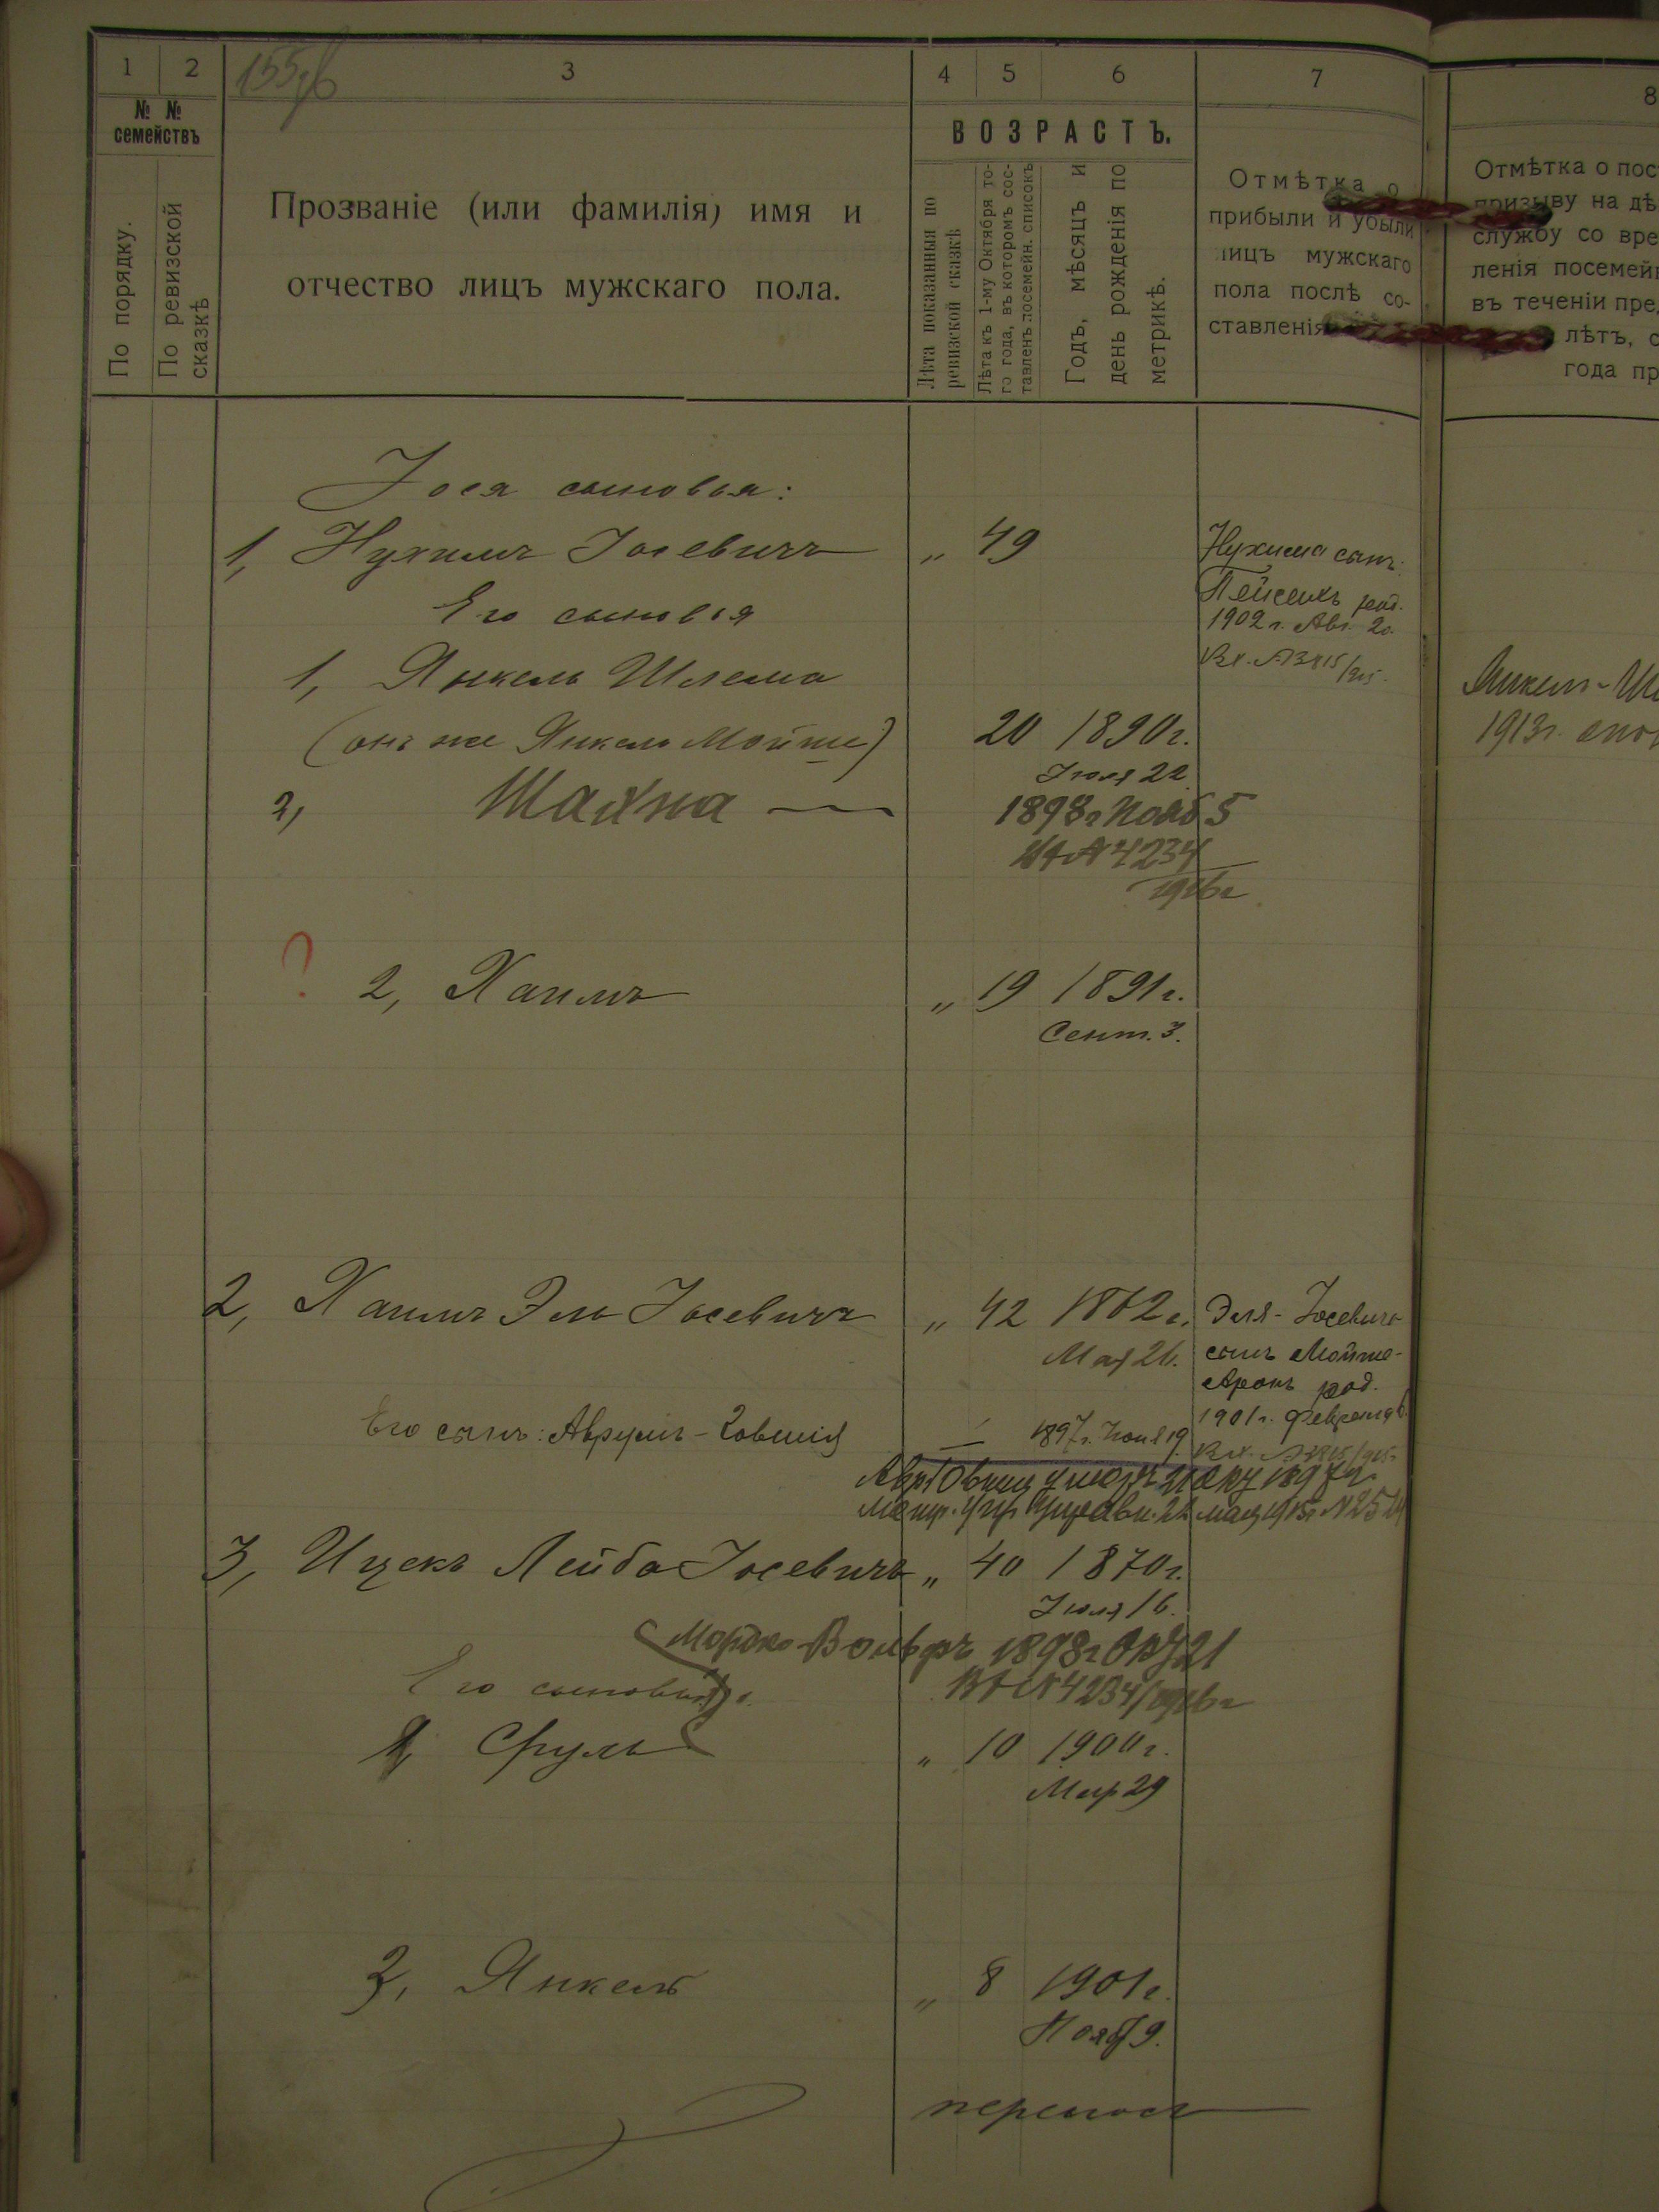 1 2 3 4 5 6 7 8
№ № семействъ
По порядку.
По ревизской сказкѣ
Прозваніе (или фамилія) имя и
отчество лицъ мужскаго пола.
ВОЗРАСТЪ.
Лѣта показанныя по
ревизской сказкѣ
Лѣта къ 1-му Октября то-
го года, въ которомъ сос-
тавленъ посемейн. списокъ
Годъ, мѣсяцъ и
день рожденія по
метрикѣ.
Отмѣтка о
прибыли и убыли
лицъ мужскаго
пола послѣ со-
ставленія
Отмѣтка о пос
призыву на дѣ
службу со вре
ленія посемей
въ теченіи пре
лѣтъ, с
года пр
Іося сыновья:
1, Нухимъ Іосевичъ „ 49
Нухима сынъ:
Пейсехъ род.
1902 г. Авг. 20.
Его сыновья
1, Янкель Шлема
(онъ же Янкель Мойше) 20 1890г.
Іюля 22
Янкель-Шл
1913г.
2, Шахна — 1898г Нояб 5
№ 4234
1916г
?
2, Хаимъ „ 19 1891г.
Сент. 3.
2, Хаимъ Эль Іосевичъ „ 42 1862г.
Мая 26.
Эля-Іосевича
сынъ Мойше-
Аронъ род.
1901г. Февраля 6.
Его сынъ: Аврумъ-Овшія — 1897г. Іюня 19
1897г.
22 мая 1915г
3, Ицекъ Лейба Іосевичъ „ 40 1870г.
Іюля 16.
Мордко-Вольфъ 1898г Окт 21
Его сыновья:
№ 4234/1916г
2, Сруль „ 10 1900г.
Мар 29
3, Янкель „ 8 1901г.
Нояб 9.
переносъ